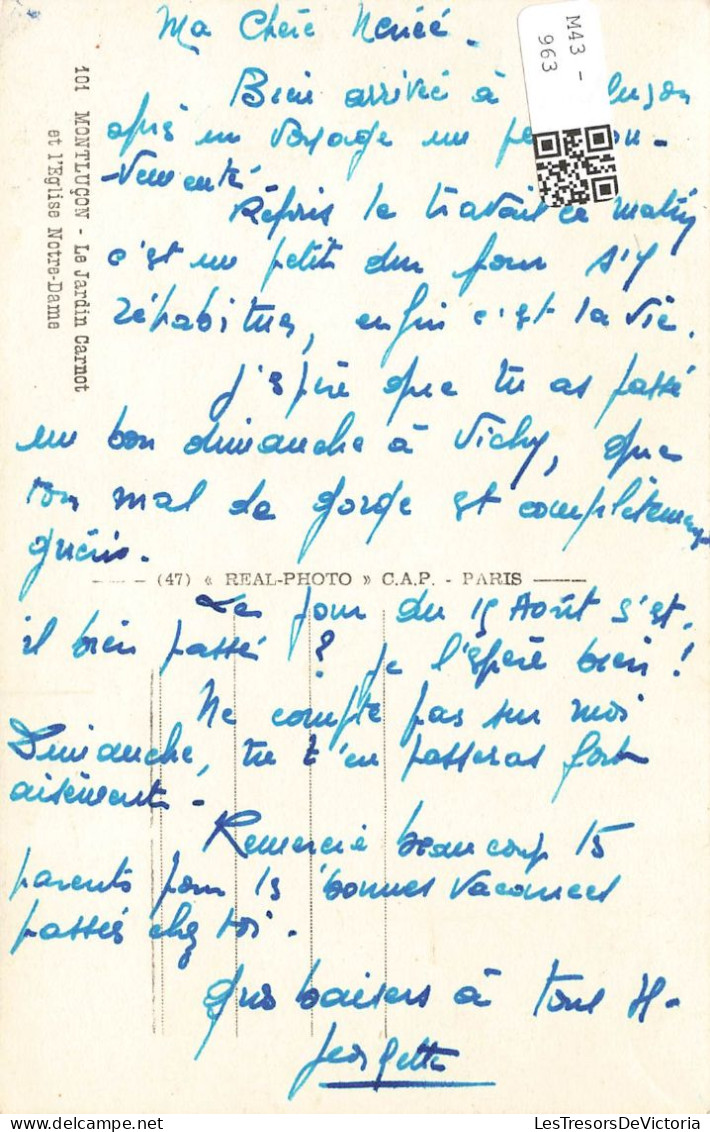 Ma Chère Renée.
M43 -
963
Bien arrivée à
après un voyage un
-vementé
Repris le travail ce matin
c'est un petit dur pour s'y
réhabituer, enfin c'est la vie.
J'espère que tu as passé
un bon dimanche à Vichy, que
ton mal de gorge est complètement
guéris.
101 MONTLUÇON - Le Jardin Carnot
et l'Eglise Notre-Dame
(47) « REAL-PHOTO » C.A.P. - PARIS
Le jour du 15 Août s'est.
il bien passé ? je l'espère bien !
Ne compte pas sur moi
Dimanche, tu t'en passeras fort
aisément -
Remercie beaucoup
parents pour bonnes vacances
passées chez toi.
Gros baisers à tous
Georgette
LesTresorsDeVictoria @ Delcampe.net